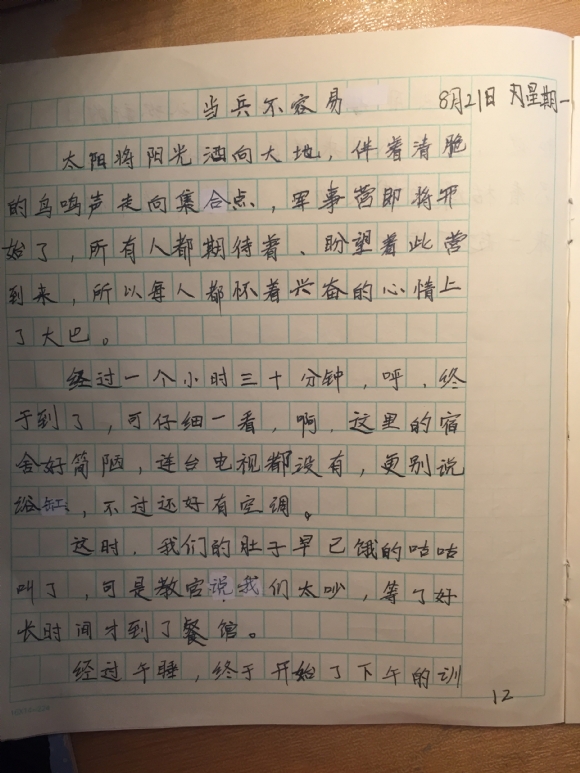 当兵不容易 8月21日 星期一
太阳将阳光洒向大地，伴着清脆
的鸟鸣声走向集合点，军事营即将开
始了，所有人都期待着、盼望着此营
到来，所以每人都怀着兴奋的心情上
了大巴。
经过一个小时三十分钟，呼，终
于到了，可仔细一看，啊，这里的宿
舍好简陋，连台电视都没有，更别说
浴缸，不过还好有空调。
这时，我们的肚子早已饿的咕咕
叫了，可是教官说我们太吵，等了好
长时间才到了餐馆。
经过午睡，终于开始了下午的训
12